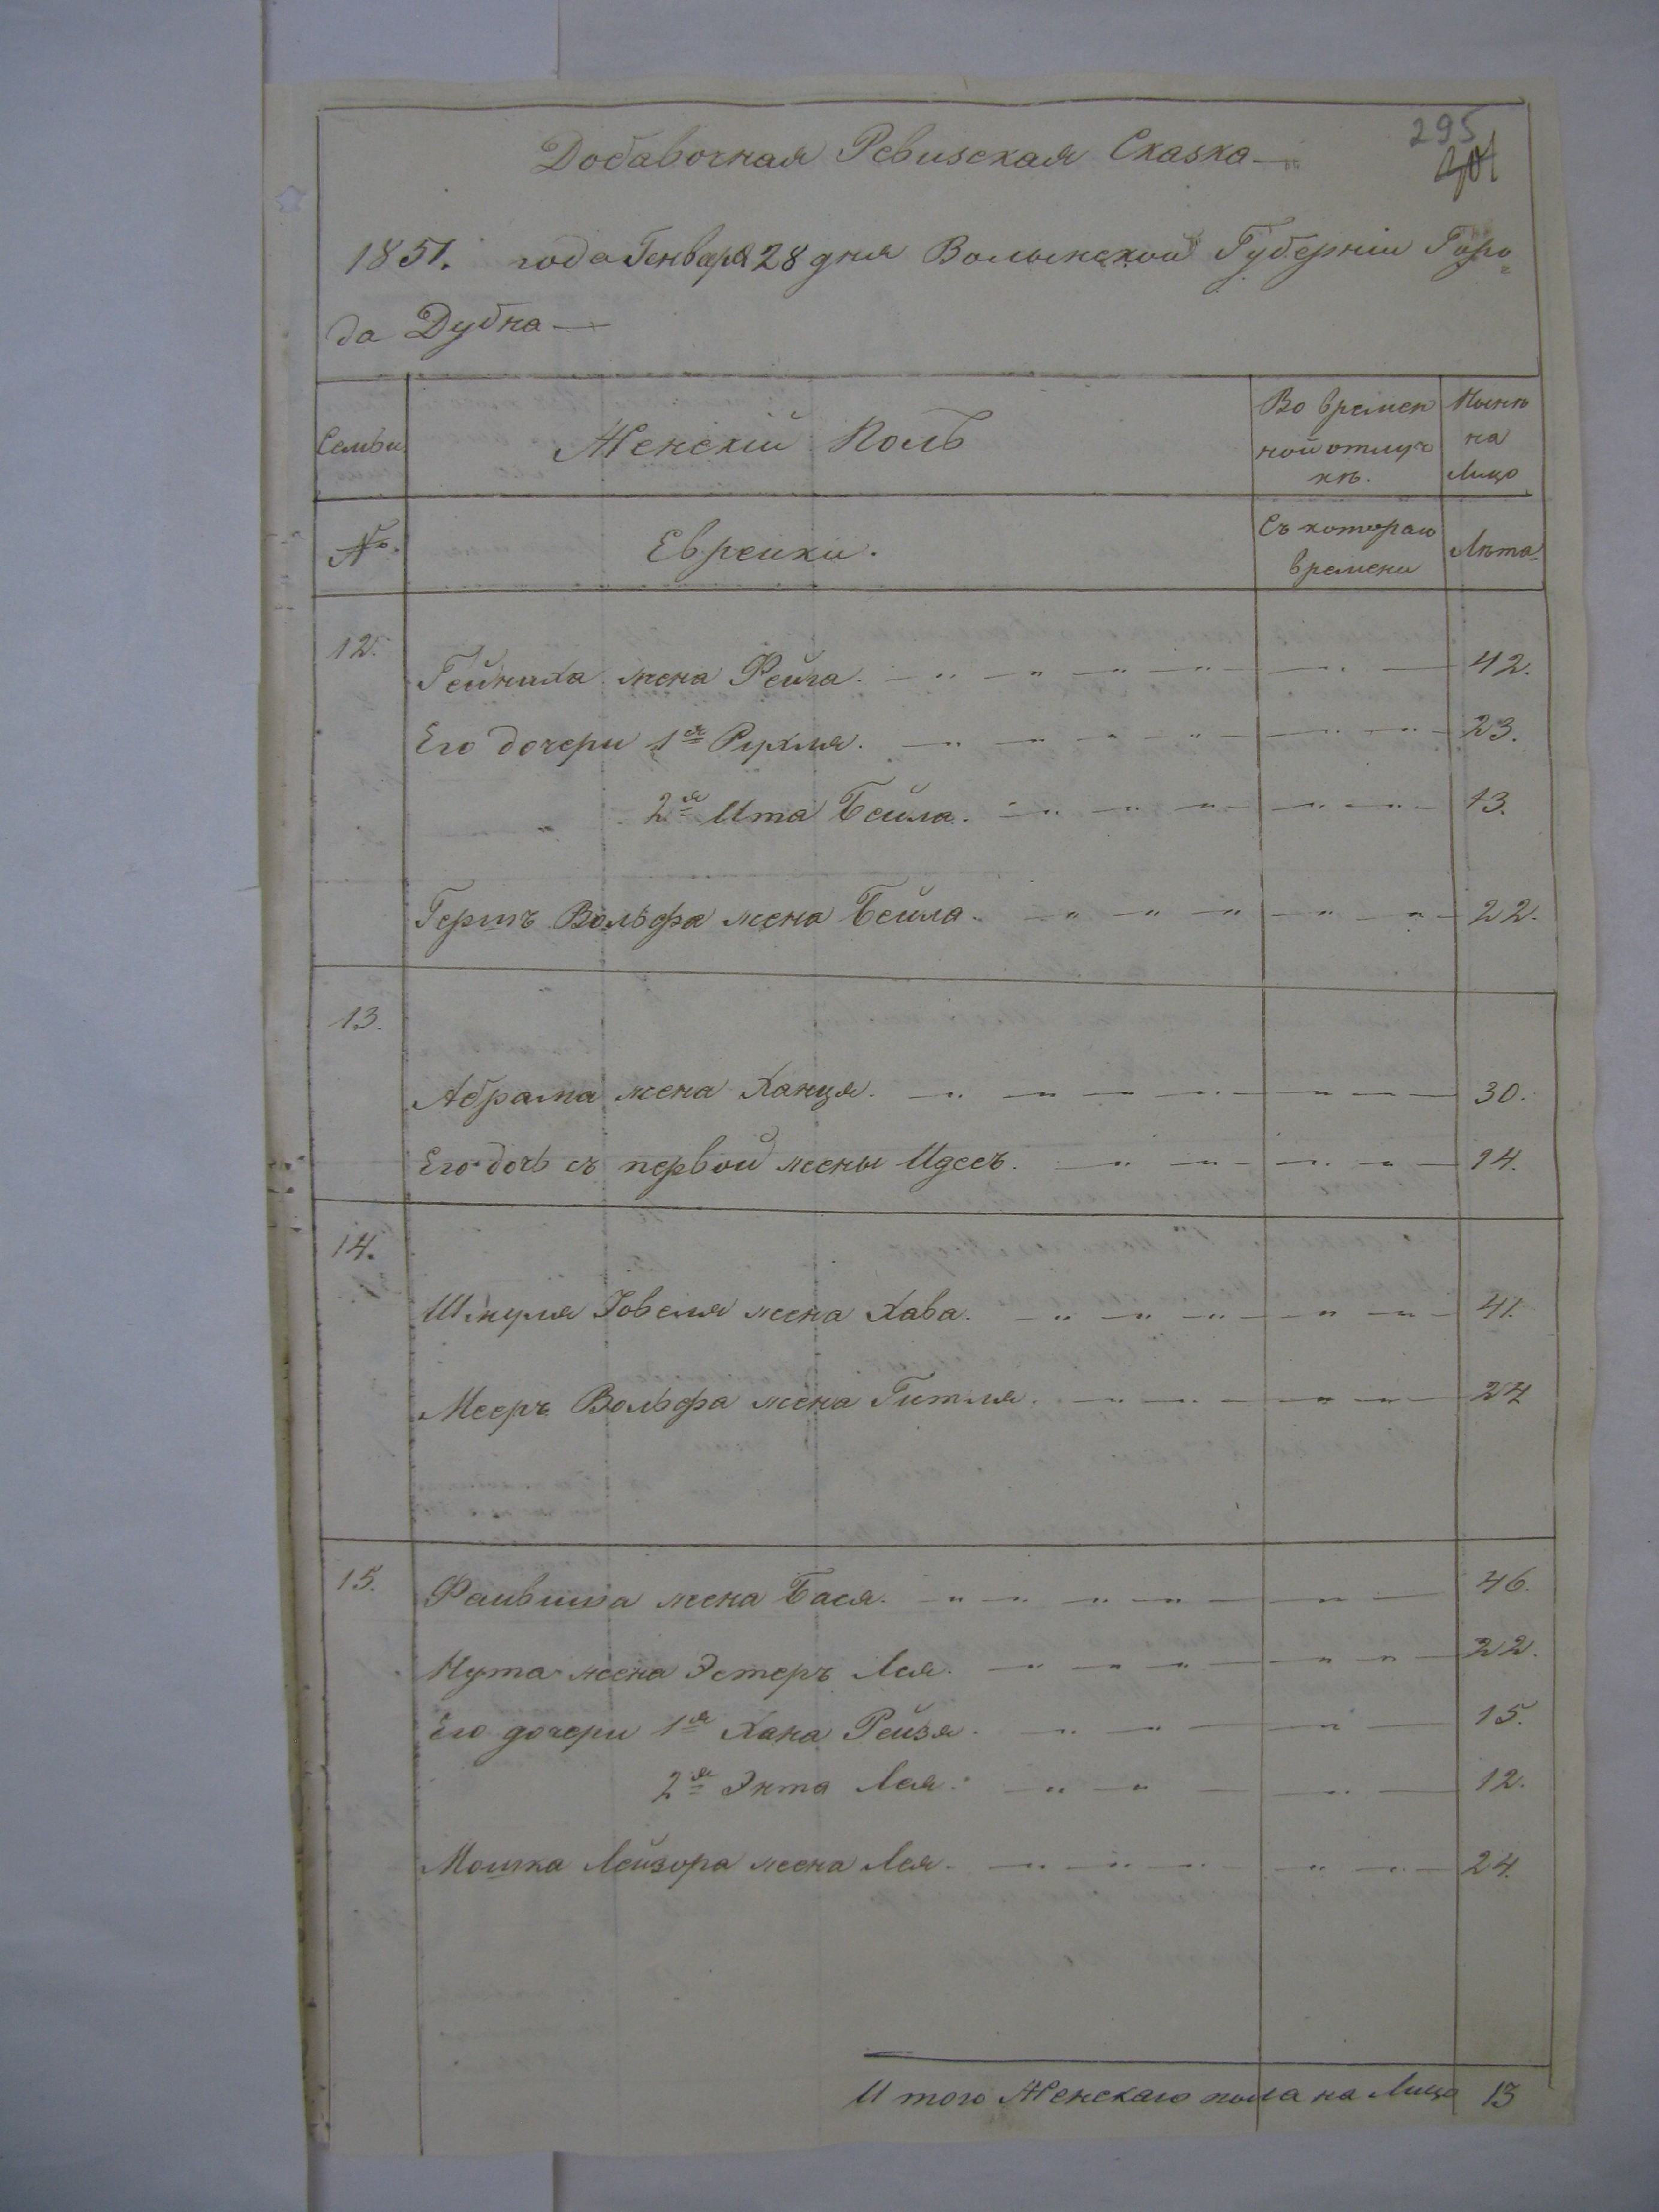 295
Добавочная Ревизская Сказка
1851. года Генваря 28 дня Волынской Губерніи Горо=
да Дубна
Семьи Женскій Полъ Во времен ной отлуч кѣ. Нынѣ на Лицо
№. Еврейки. Съ котораго времени Лѣта.
12.
Гейниха жена Фейга. 42.
Его дочери 1я Рухля. 23.
2я Ита Бейла. 13.
Гершъ Вольфа жена Бейла. 22.
13.
Абрама жена Ханця. 30.
Его дочь съ первой жены Идесъ. 14.
14.
Шмуля Іовеля жена Хава. 41.
Мееръ Вольфа жена Гитля. 24
15. Файвиша жена Бася. 46.
Нута жена Эстеръ Лея. 22.
Его дочери 1я Хана Рейзя. 15.
2я Энта Лея. 12.
Мошка Лейзора жена Лея. 24.
Итого Женскаго пола на Лицо 13